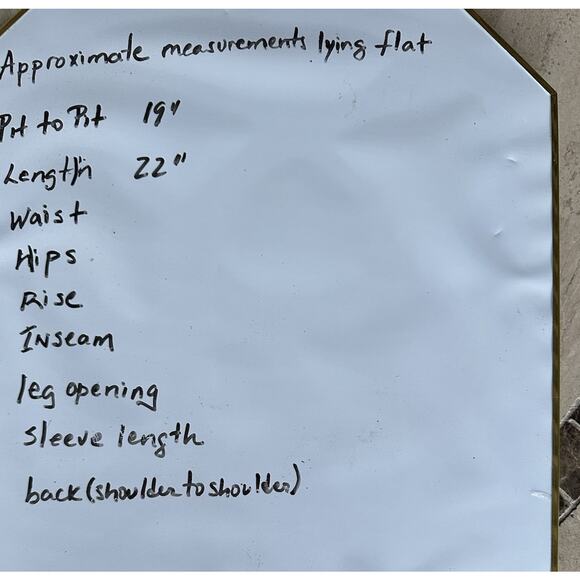 Approximate measurements lying flat
Pit to Pit 19"
Length 22"
Waist
Hips
Rise
Inseam
leg opening
sleeve length
back (shoulder to shoulder)